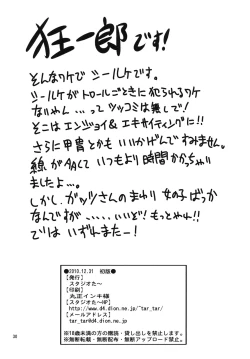 狂一郎です!
そんなワケでシールケです。
シールケがトロールごときに犯られるワケ
ないやん...ってツッコミは無しで!
そこはエンジョイ&エキサイティングに!!
さらに甲冑とかもいいかげんですみません。
線が多くていつもより時間かかっちゃい
ましたよ...。
しかし、ガッツさんのまわり女の子ばっか
なんですが、......いいぞ!もっとやれ!!
ではいずれまたー!
●2010.12.31 初版●
【発行】
スタジオた〜
【印刷】
丸正インキ様
【スタジオた〜HP】
http://www.d4.dion.ne.jp/~tar_tar/
【メールアドレス】
tar_tar@d4.dion.ne.jp
※18歳未満の方の閲読・貸し出しを禁止します。
※無断転載・無断配布・無断アップロード禁止。
30